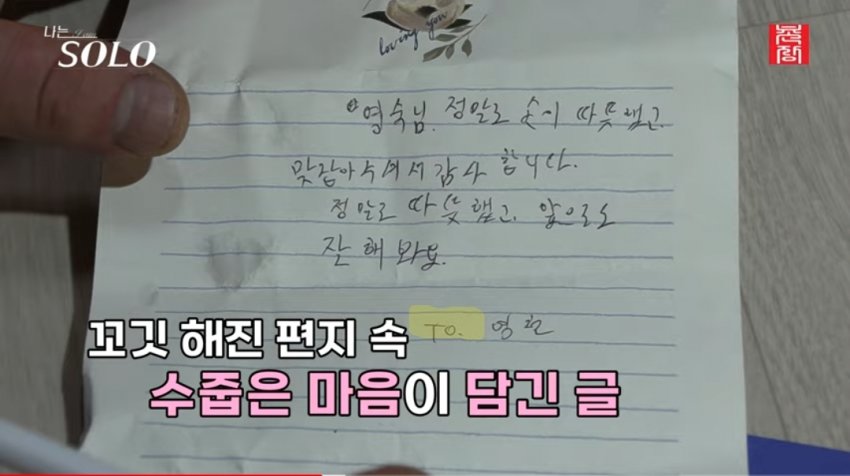 나는 Solo
SOLO
촌장
loving you
영숙님. 정말로 손이 따뜻했고.
맞잡아주셔서 감사 합니다.
정말로 따뜻했고. 앞으로도
잘 해 봐요.
TO. 영철
꼬깃 해진 편지 속
수줍은 마음이 담긴 글